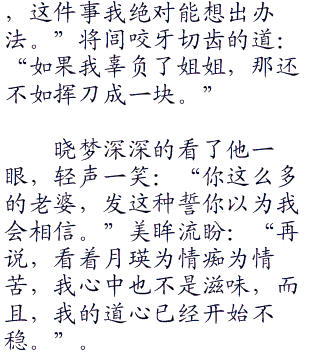 ，这件事我绝对能想出办
法。”将闾咬牙切齿的道：
“如果我辜负了姐姐，那还
不如挥刀成一块。”
晓梦深深的看了他一
眼，轻声一笑：“你这么多
的老婆，发这种誓你以为我
会相信。”美眸流盼：“再
说，看着月瑛为情痴为情
苦，我心中也不是滋味，而
且，我的道心已经开始不
稳。”。